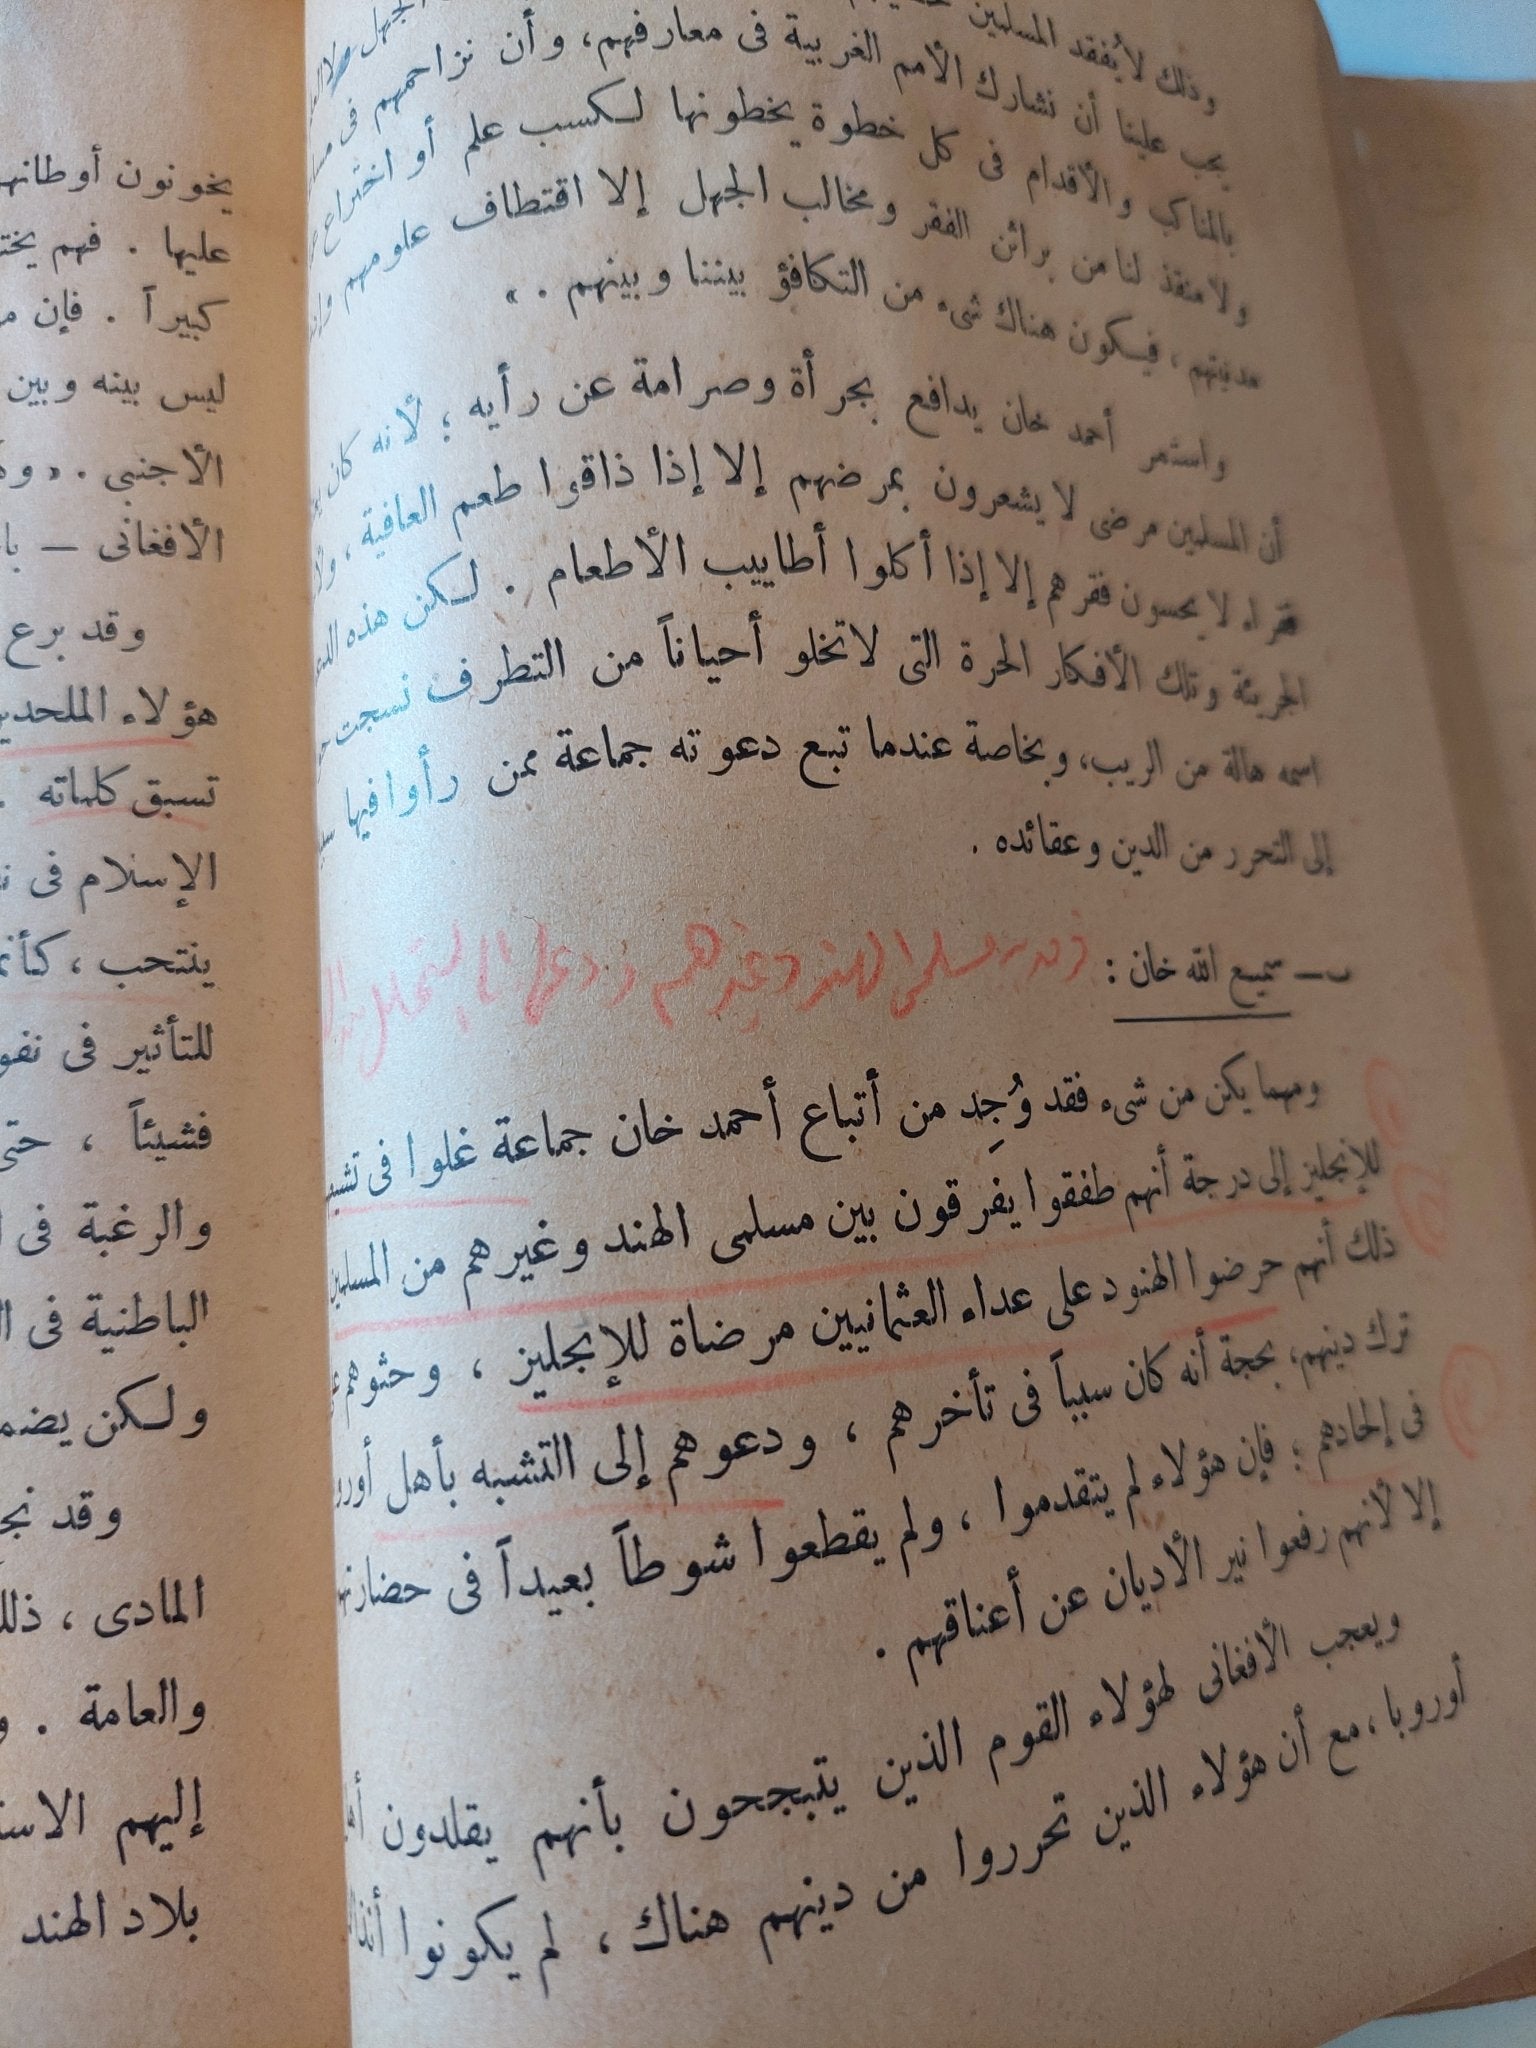 وذلك لا يُفقد المسلمين
يجب علينا أن نشارك الأمم الغربية فى معارفهم، وأن نزاحمهم فى
بالمناكب والأقدام فى كل خطوة يخطونها لكسب علم أو اختراع
ولا منقذ لنا من براثن الفقر ومخالب الجهل إلا اقتطاف علومهم
مدنيتهم، فيكون هناك شىء من التكافؤ بيننا وبينهم . »
واستمر أحمد خان يدافع بجرأة وصرامة عن رأيه ؛ لأنه كان
أن المسلمين مرضى لا يشعرون بمرضهم إلا إذا ذاقوا طعم العافية ،
فقراء لا يحسون فقرهم إلا إذا أكلوا أطاييب الأطعام . لكن هذه
الجريئة وتلك الأفكار الحرة التى لا تخلو أحياناً من التطرف نسجت
اسمه هالة من الريب، وبخاصة عندما تبع دعوته جماعة ممن رأوا فيها
إلى التحرر من الدين وعقائده .
ب — سميع الله خان :
مسلمى الهند وغيرهم
ومهما يكن من شىء فقد وُجِد من أتباع أحمد خان جماعة غلوا فى
للإنجليز إلى درجة أنهم طفقوا يفرقون بين مسلمى الهند وغيرهم من المسلمين
ذلك أنهم حرضوا الهنود على عداء العثمانيين مرضاة للإنجليز ، وحثوهم
ترك دينهم، بحجة أنه كان سبباً فى تأخرهم ، ودعوهم إلى التشبه بأهل
فى إلحادهم ؛ فإن هؤلاء لم يتقدموا ، ولم يقطعوا شوطاً بعيداً فى
إلا لأنهم رفعوا نير الأديان عن أعناقهم .
ويعجب الأفغانى لهؤلاء القوم الذين يتبجحون بأنهم يقلدون
أوروبا، مع أن هؤلاء الذين تحرروا من دينهم هناك ، لم يكونوا
يخونون
عليها . فهم
كبيراً . فإن
ليس بينه وبين
الأجنبى .
الأفغانى —
وقد برع
هؤلاء
تسبق كلماته .
الإسلام فى
ينتحب ،
للتأثير فى
فشيئاً ،
والرغبة فى
الباطنية فى
ولكن
وقد
المادى ،
والعامة .
إليهم
بلاد الهند